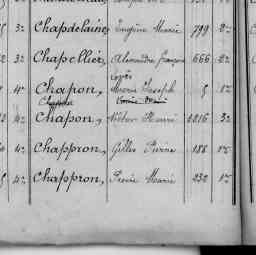 3e Chapdelaine, Eugène Marie 799 2e
3e Chapellier, Alexandre François 666 2e
4e Chapon, Marie Joseph 5 1e
Chappon
4e Chapon, Victor Henri 1016 3e
4e Chappron, Gilles 188 1e
4e Chappron, Marie 230 1e